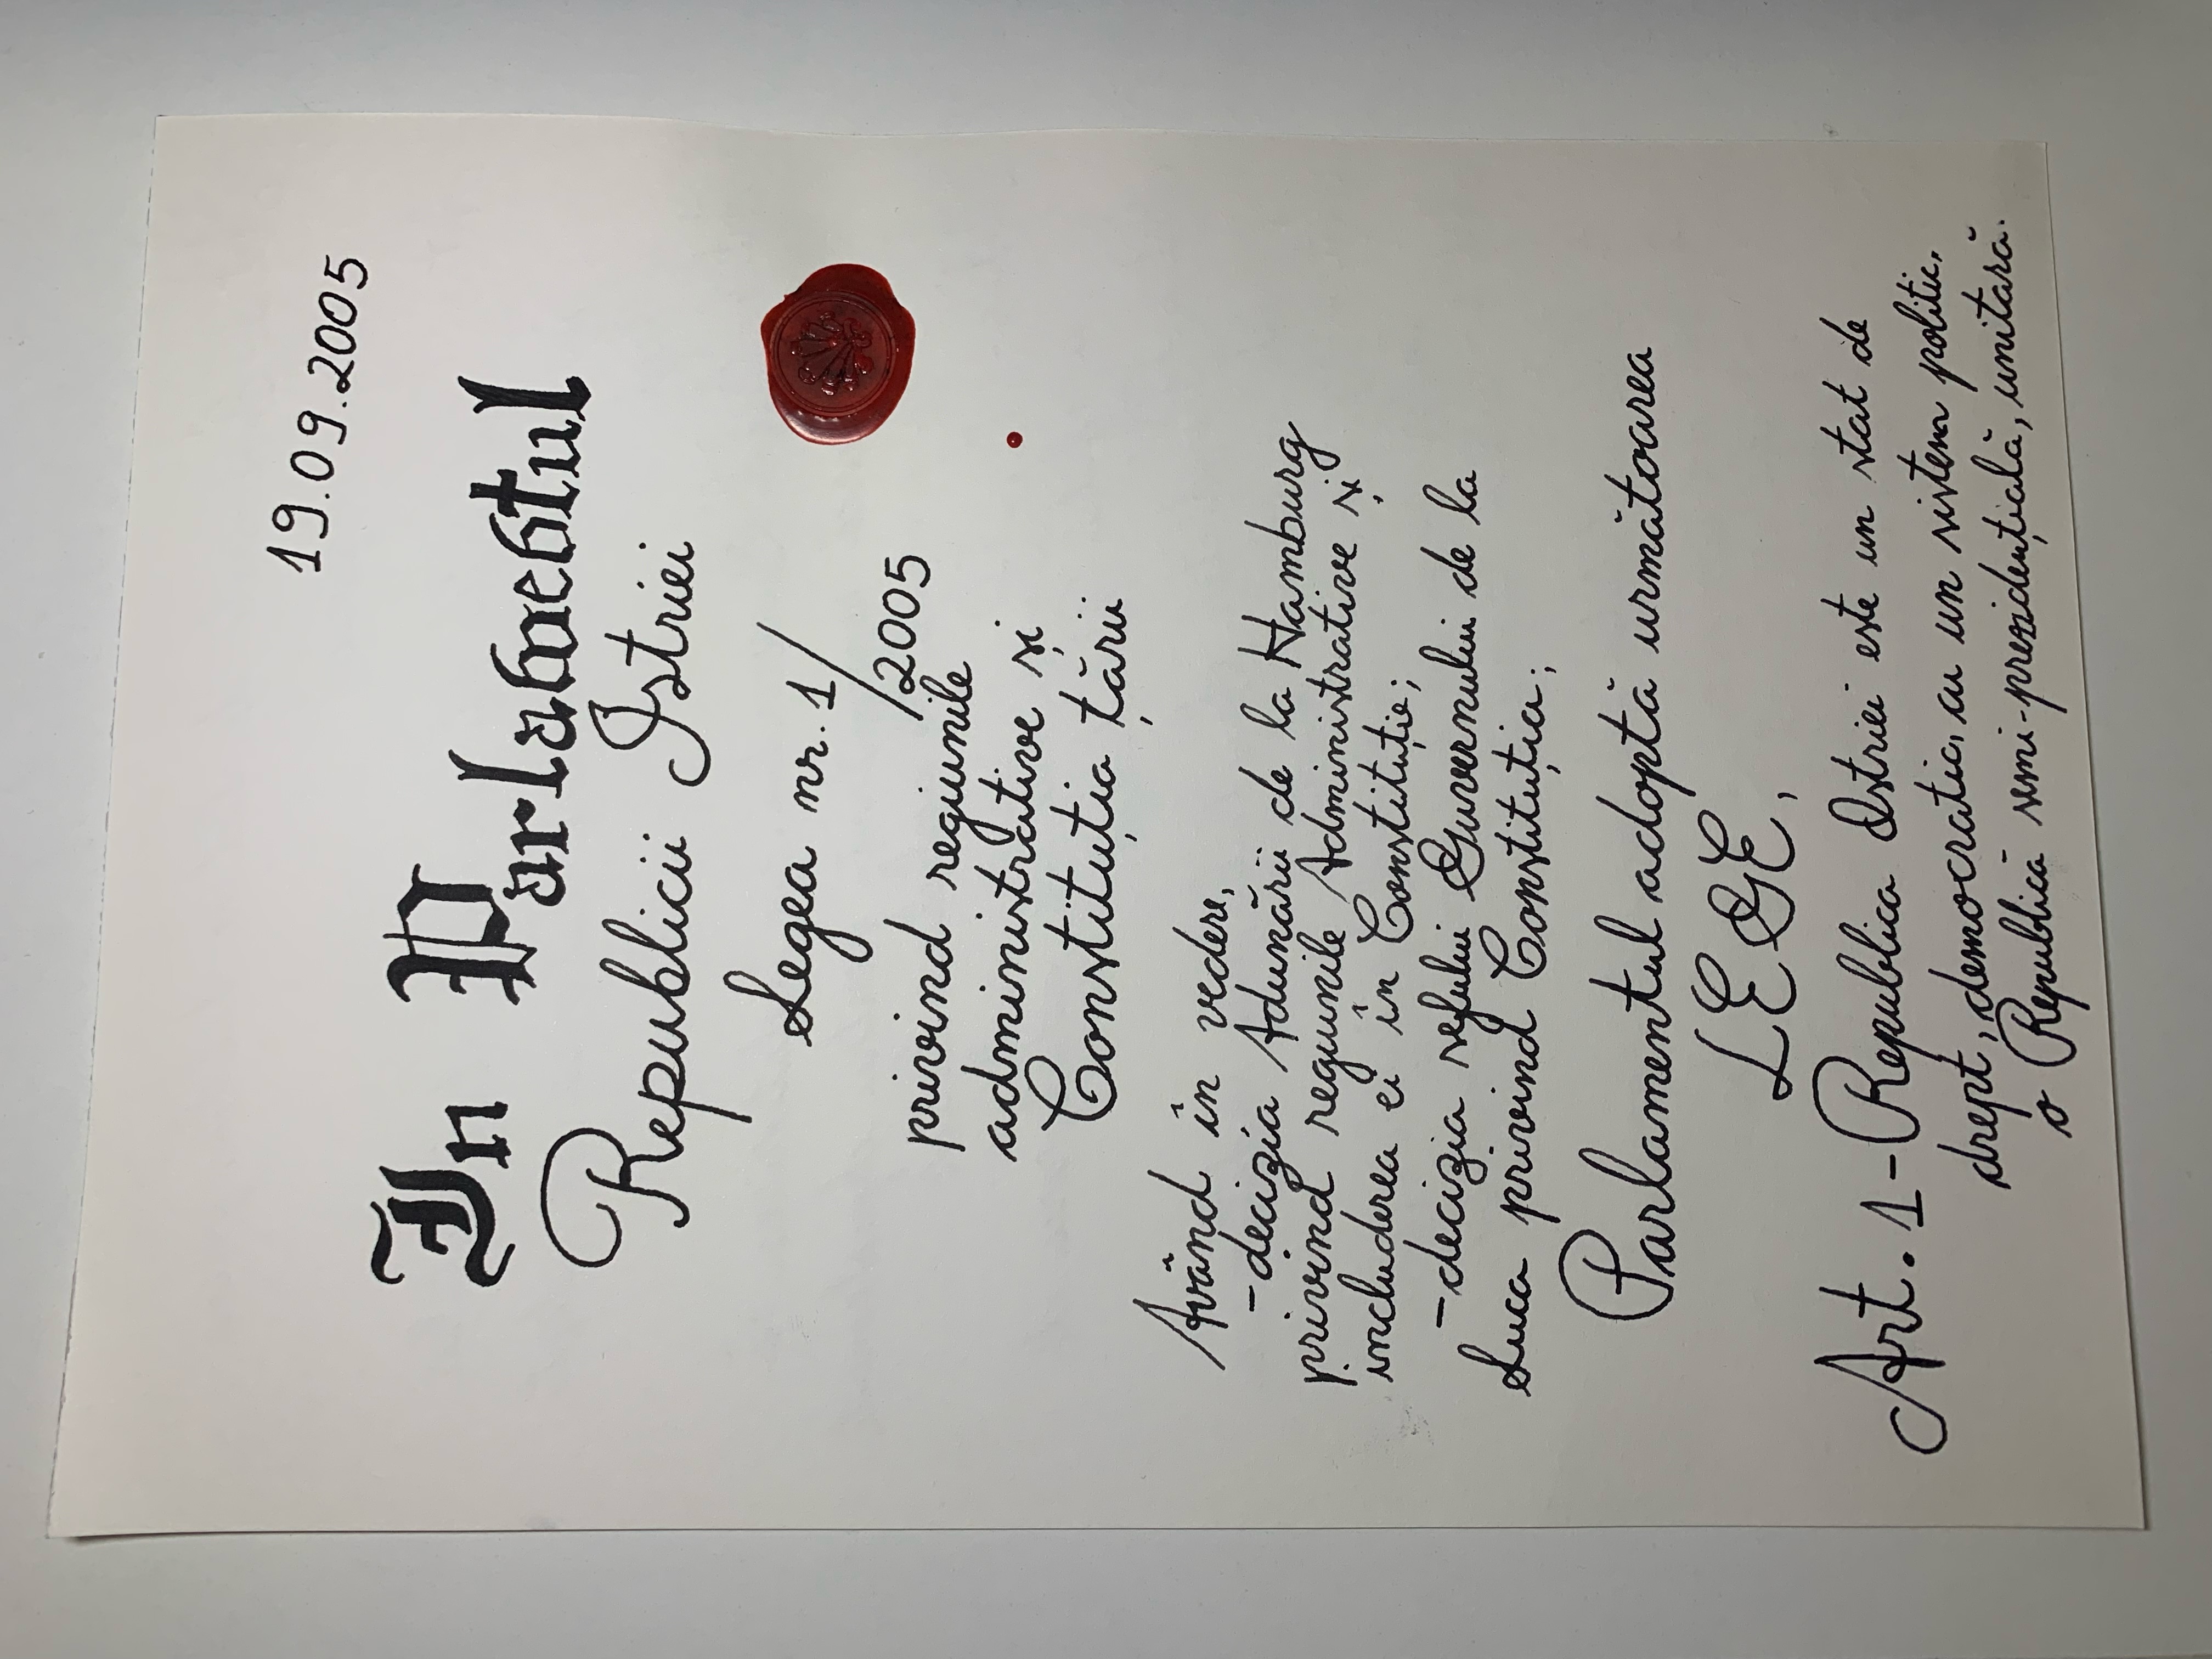 19.09.2005
In Parlamentul
Republicii Istriei
Legea nr. 1/2005
privind regiunile
administrative și
Constituția țării
Având în vedere,
-decizia Adunării de la Hamburg
privind regiunile Administrative și
includerea ei în Constituție;
-decizia șefului Guvernului de la
Luca privind Constituția;
Parlamentul adoptă următoarea
LEGE,
Art. 1-Republica Istriei este un stat de
drept, democratic, cu un sistem politic,
o Republică semi-prezidențială, unitară.